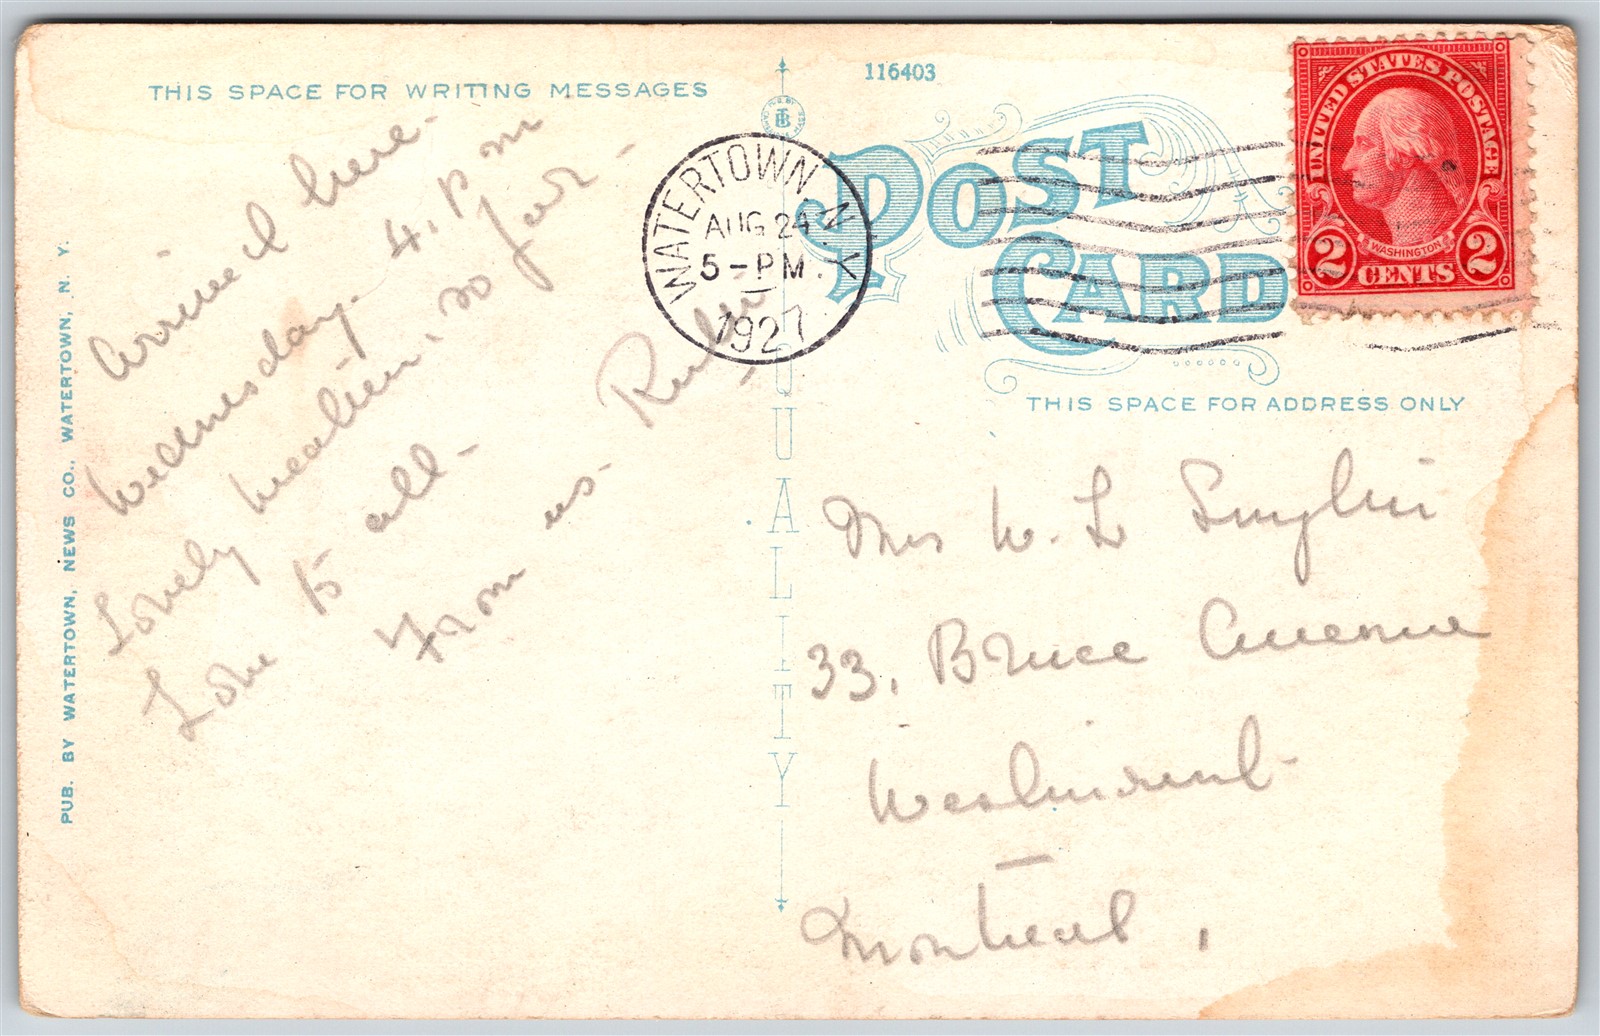 THIS SPACE FOR WRITING MESSAGES
116403
POST
CARD
UNITED STATES POSTAGE
WASHINGTON
2 CENTS 2
WATERTOWN, N.Y.
AUG 24
5-PM
1927
THIS SPACE FOR ADDRESS ONLY
PUB. BY WATERTOWN, NEWS CO., WATERTOWN, N. Y.
QUALITY
Arrived here -
Wednesday. 4. P m
Lovely weather, so far -
Love to all -
From us - Ruby
Mrs W. L
33, Bruce Avenue
Westmount -
Montreal,